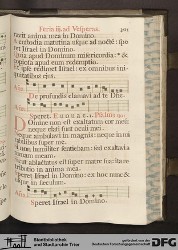 Feria iij. ad Vesperas.
ravit anima mea in Domino.
A custodia matutina usque ad noctē: spe-
ret Israel in Domino.
Quia apud Dominum misericordia: &
copiosa apud eum redemptio.
Et ipse redimet Israel ex omnibus ini-
quitatibus ejus.
Aña.
De profundis clamavi ad te Do-
Aña.
Speret. E u o u a e. Psalmus
Domine non est exaltatum cor meū:
neque elati sunt oculi mei.
Neque ambulavi in magnis: neque in mi-
rabilibus super me.
Si non humiliter sentiebam: sed exaltavi
animam meam.
Sicut ablactatus est super matre sua: ita
retributio in anima mea.
Speret Israel in Domino: ex hoc nunc &
usque in sæculum.
Aña.
Speret Israel in Domino.
Stadtbibliothek
und Stadtarchiv Trier
gefördert von der
Deutschen Forschungsgemeinschaft
DFG